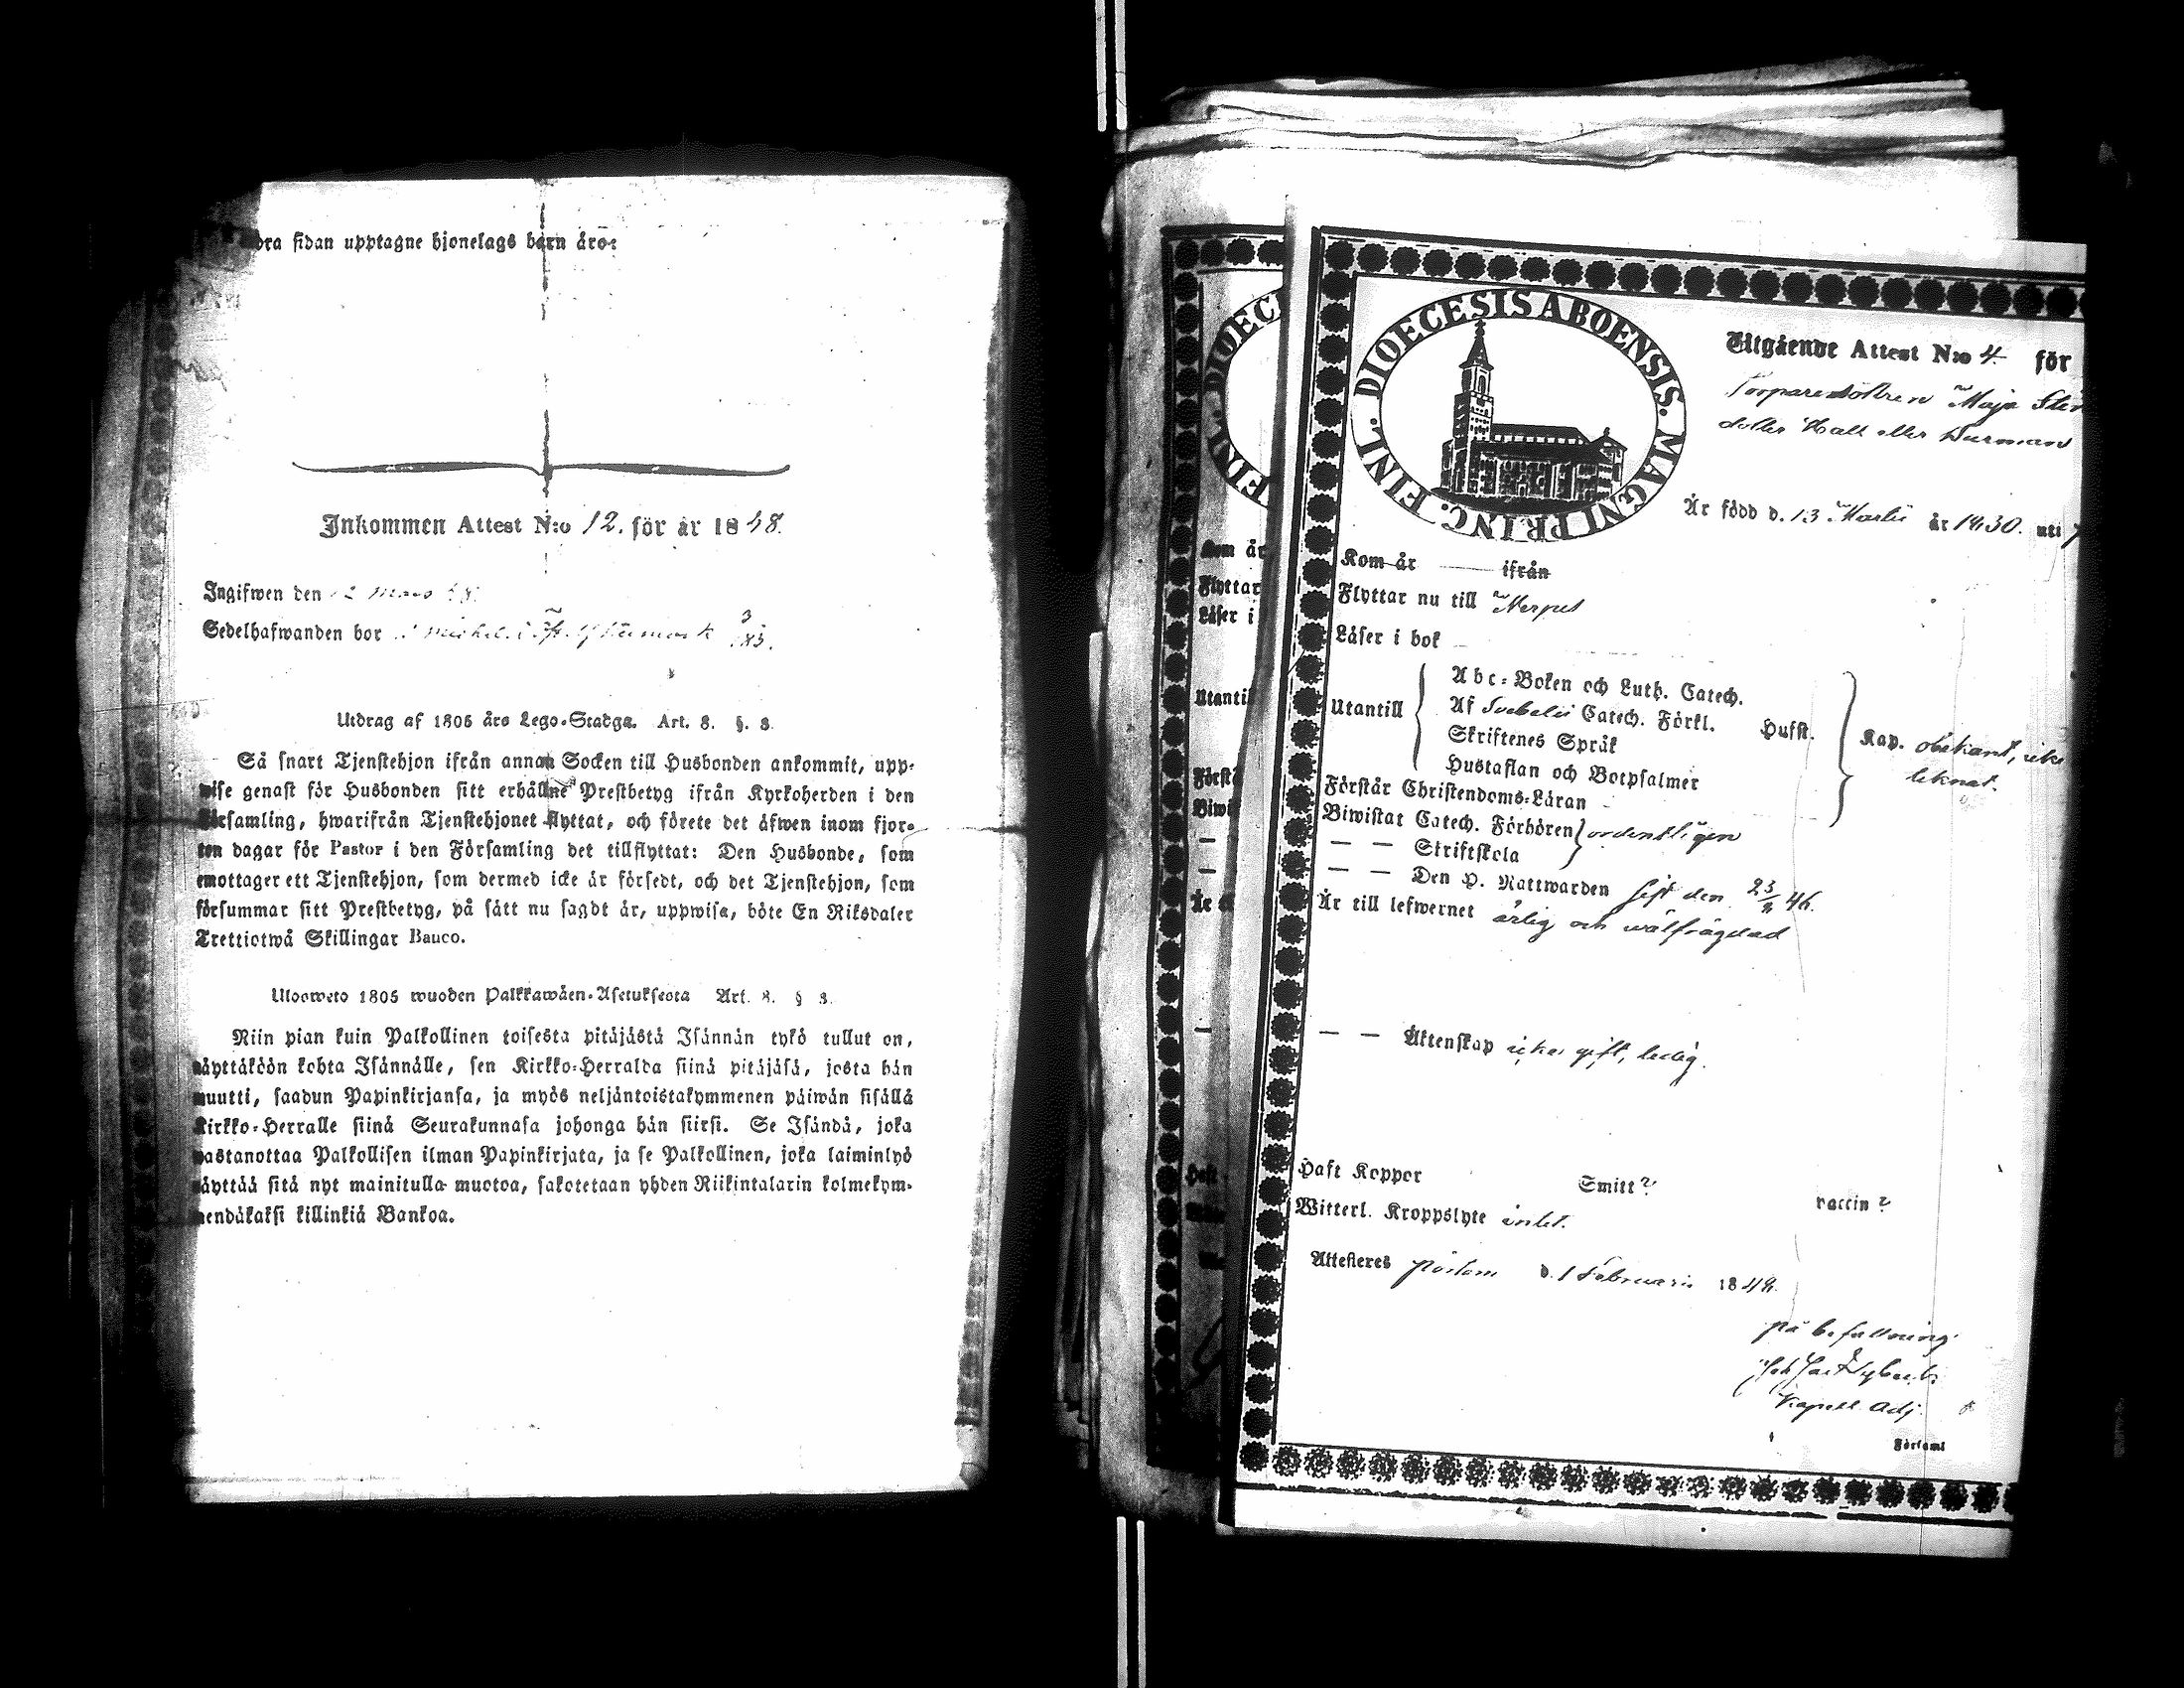 dra sidan upptagne hjonelags barn äro:
Inkommen Attest N:o 12. för år 1848.
Ingifwen den 12 Mars 48.
Sedelhafwanden bor
Utdrag af 1805 års Lego-Stadga. Art. 8. §. 3.
Så snart Tjenstehjon ifrån annan Socken till Husbonden ankommit, upp-
wise genast för Husbonden sitt erhållne Prestbetyg ifrån Kyrkoherden i den
Församling, hwarifrån Tjenstehjonet flyttat, och förete det äfwen inom fjor-
ton dagar för Pastor i den Församling det tillflyttat: Den Husbonde, som
emottager ett Tjenstehjon, som dermed icke är försedt, och det Tjenstehjon, som
försummar sitt Prestbetyg, på sätt nu sagdt är, uppwisa, böte En Riksdaler
Trettiotwå Skillingar Banco.
Uloosweto 1805 wuoden Palkkawäen-Asetuksesta Art. 8. § 3.
Niin pian kuin Palkollinen toisesta pitäjästä Isännän tykö tullut on,
näyttäköön kohta Isännälle, sen Kirkko-Herralda siinä pitäjäsä, josta hän
muutti, saadun Papinkirjansa, ja myös neljäntoistakymmenen päiwän sisällä
Kirkko-Herralle siinä Seurakunnasa johonga hän siirsi. Se Isändä, joka
wastanottaa Palkollisen ilman Papinkirjata, ja se Palkollinen, joka laiminlyö
näyttää sitä nyt mainitulla muotoa, sakotetaan yhden Riikintalarin kolmekym-
mendäkaksi killinkiä Bankoa.
DIOECESIS ABOENSIS. MAGNI PRINC. FINL.
Utgående Attest N:o 4 för
Torparedottren Maja
dotter Hall eller
Är född d. 13 Martii år 1830. uti
Kom år ifrån
Flyttar nu till Kerpus
Läser i bok
Utantill
Abc-Boken och Luth. Catech.
Af Svebelii Catech. Förkl. Hufst.
Skriftenes Språk
Hustaflan och Botpsalmer
Kap. obekant, icke
leknat.
Förstår Christendoms-Läran
Biwistat Catech. Förhören
— — Skriftskola
ordentligen
— — Den H. Nattwarden sist den 46.
Är till lefwernet ärlig och wälfrägdad
— — Äktenskap icke gift, ledig.
Haft Koppor Smitt? vaccin?
Witterl. Kroppslyte intet.
Attesteres Pörtom d. 1 Februarii 1848.
På befallning
Kapell. Adj.
Församl